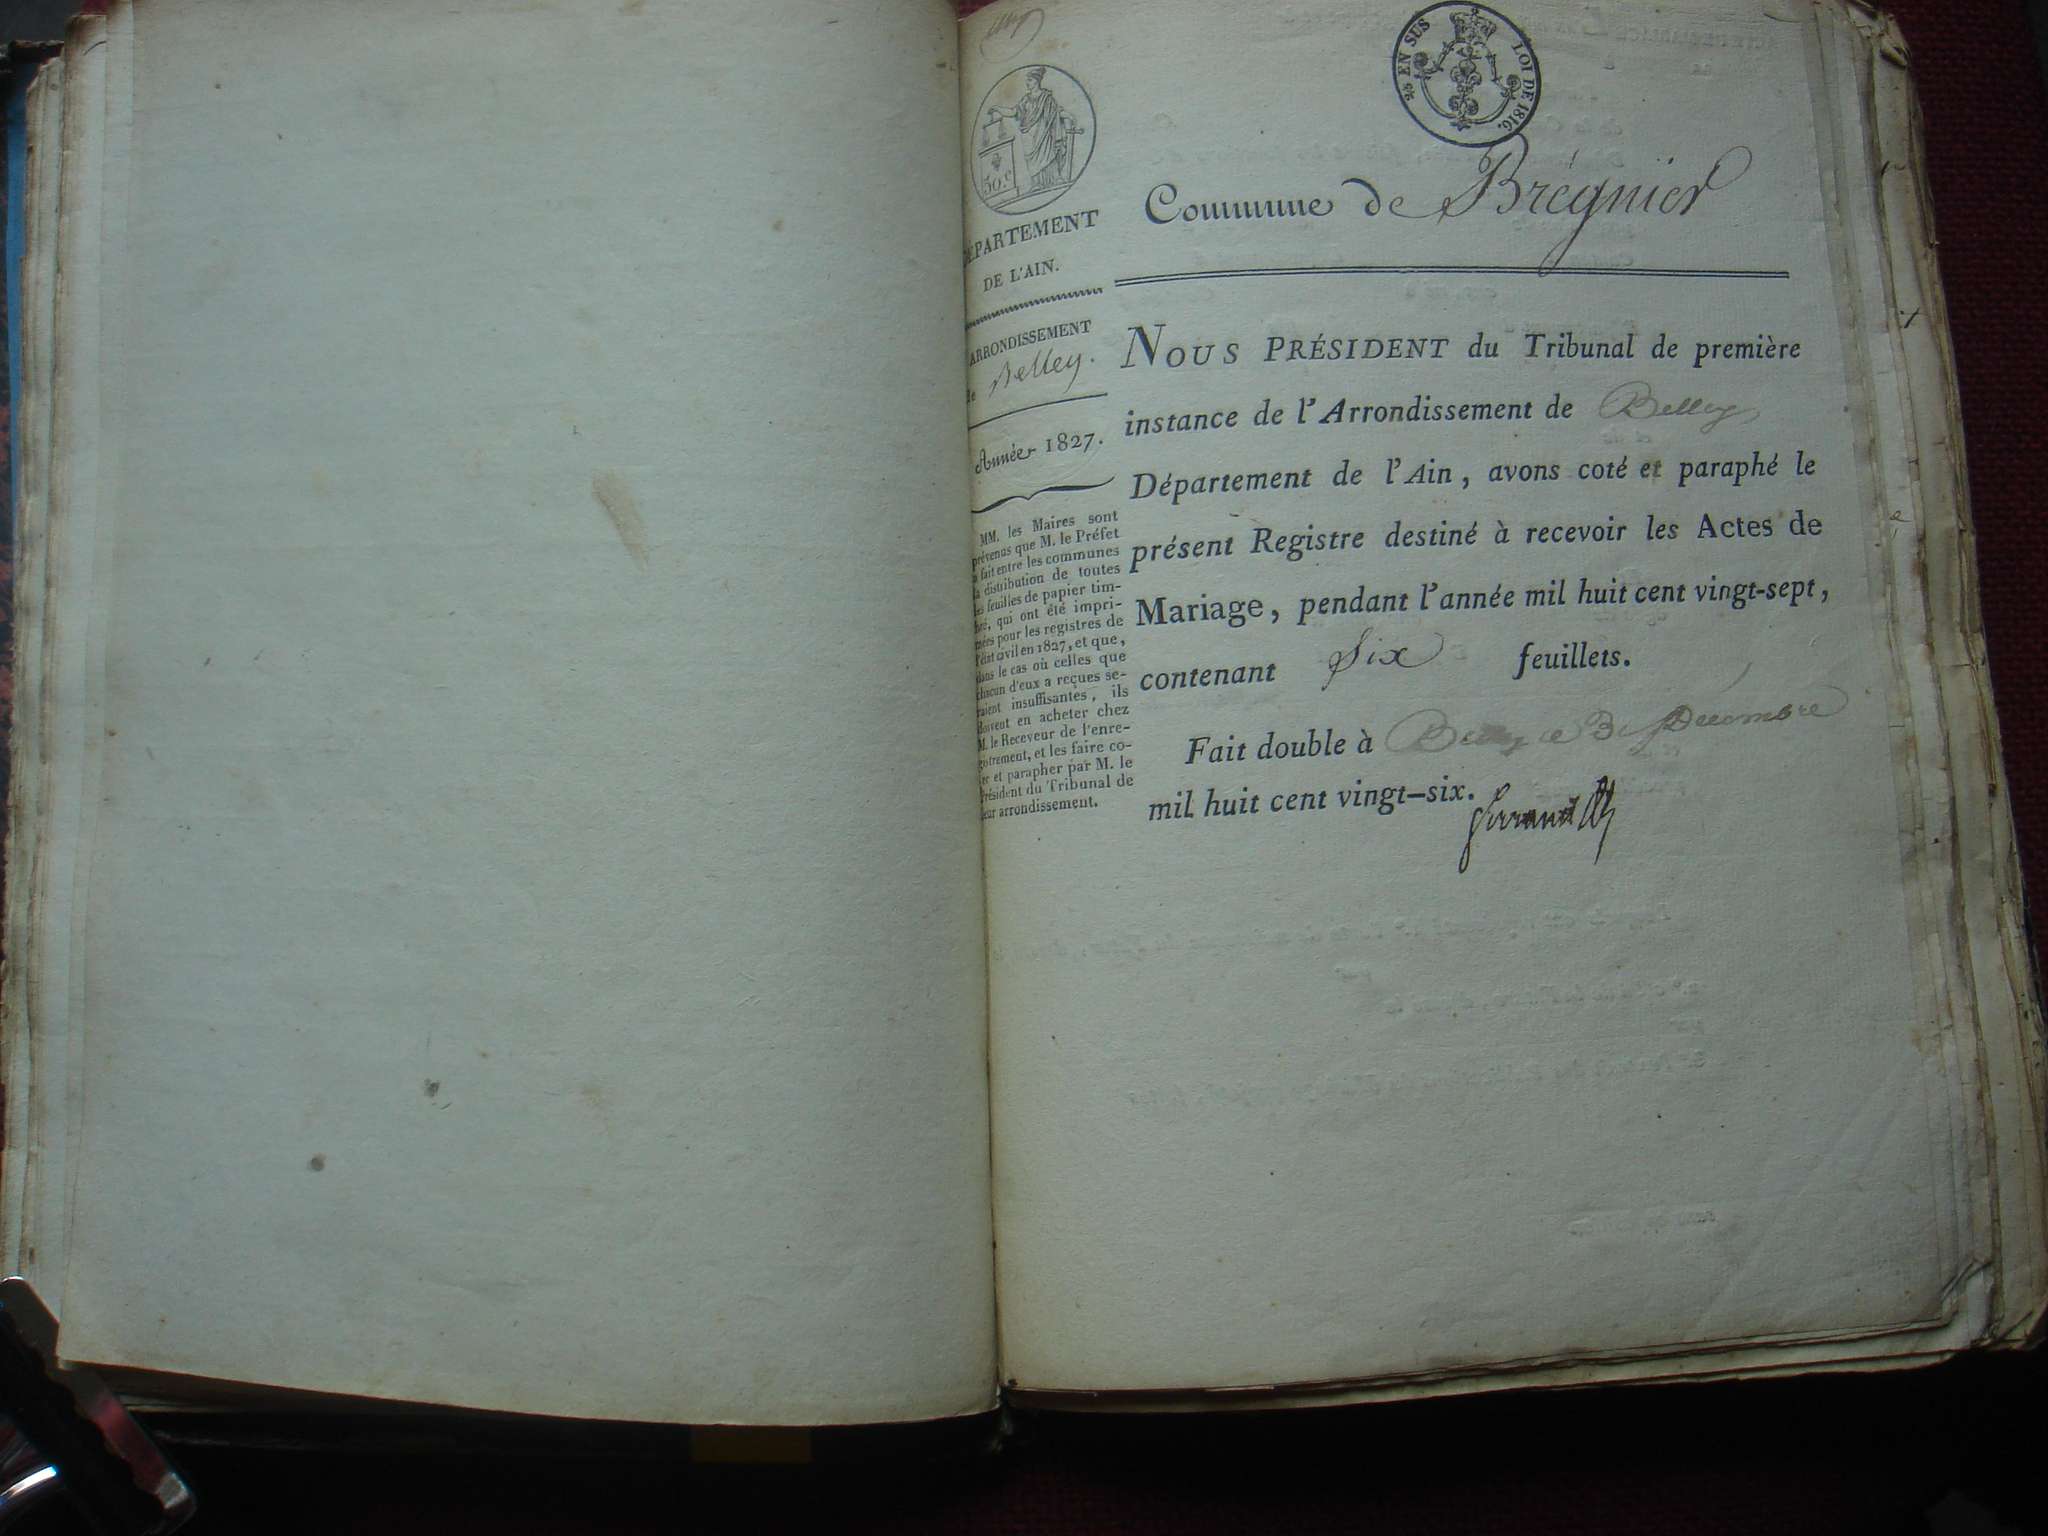 2/5 EN SUS LOI DE 1816.
50.c
Commune de Brégnier
DÉPARTEMENT
DE L'AIN.
ARRONDISSEMENT
de Belley.
Année 1827.
MM. les Maires sont
prévenus que M. le Préfet
a fait entre les communes
la distribution de toutes
les feuilles de papier tim-
bré, qui ont été impri-
mées pour les registres de
l'état civil en 1827, et que,
dans le cas où celles que
chacun d'eux a reçues se-
raient insuffisantes, ils
doivent en acheter chez
M. le Receveur de l'enre-
gistrement, et les faire co-
ter et parapher par M. le
Président du Tribunal de
leur arrondissement.
NOUS PRÉSIDENT du Tribunal de première
instance de l'Arrondissement de Belley
Département de l'Ain, avons coté et paraphé le
présent Registre destiné à recevoir les Actes de
Mariage, pendant l'année mil huit cent vingt-sept,
contenant Six feuillets.
Fait double à Belley ce Décembre
mil huit cent vingt-six.